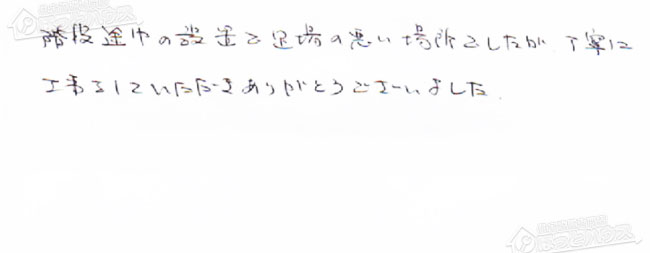 階段途中の設置で足場の悪い場所でしたが 丁寧に
工事をしていただきありがとうございました